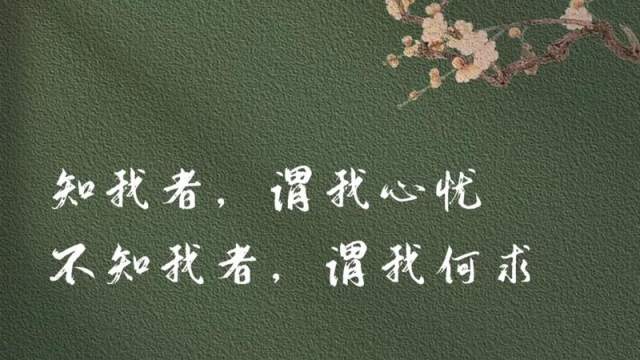 知我者，谓我心忧
不知我者，谓我何求